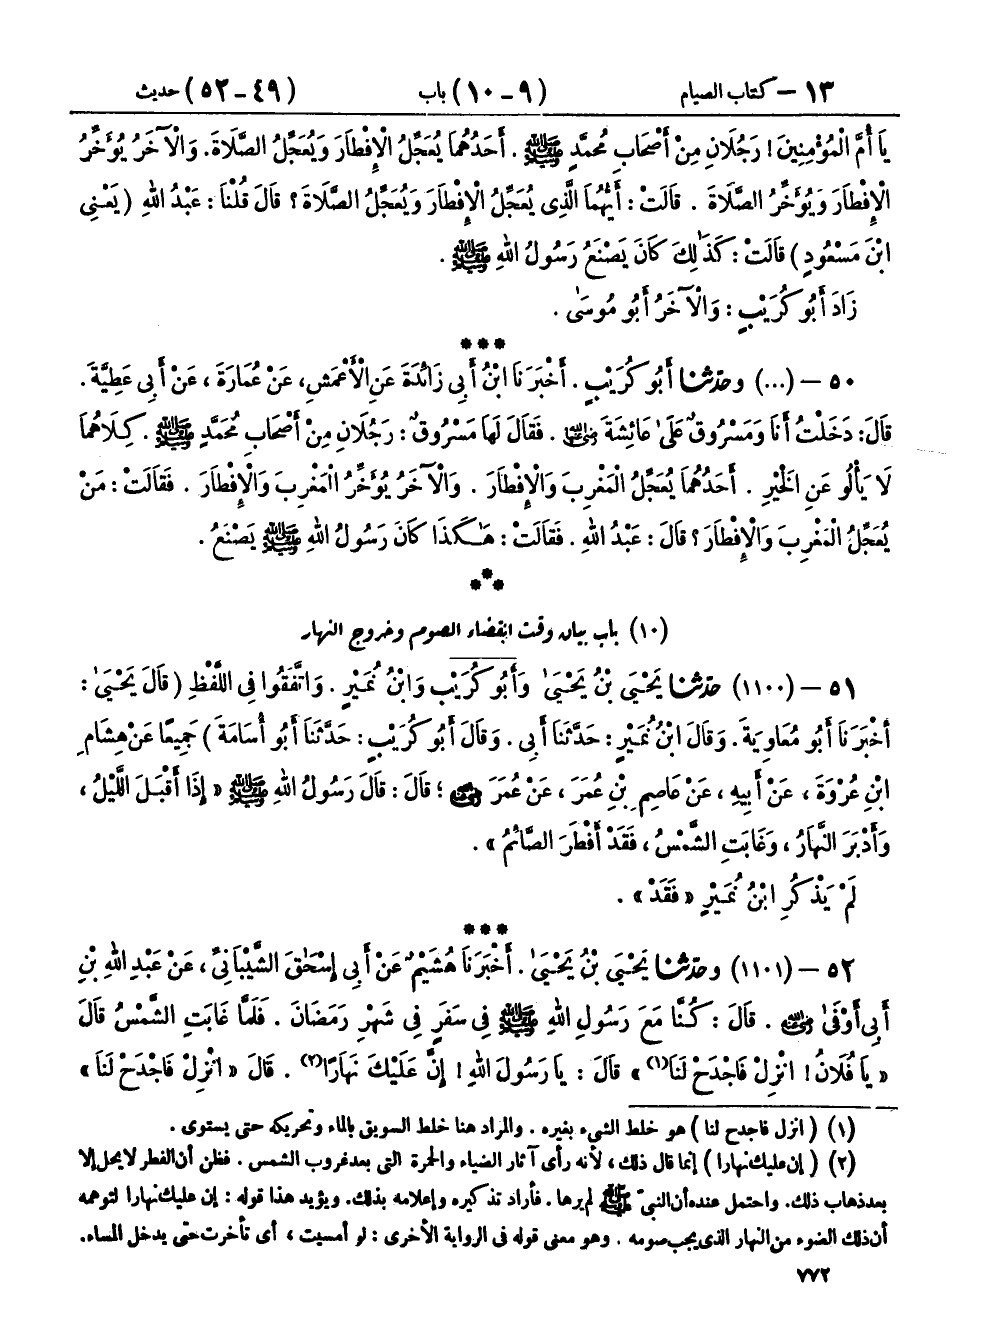 ١٣ – كتاب الصيام (٩ – ١٠) باب (٤٩ – ٥٢) حديث
يَا أُمَّ الْمُؤْمِنِينَ! رَجُلَانِ مِنْ أَصْحَابِ مُحَمَّدٍ ﷺ. أَحَدُهُمَا يُعَجِّلُ الْإِفْطَارَ وَيُعَجِّلُ الصَّلَاةَ. وَالْآخَرُ يُؤَخِّرُ
الْإِفْطَارَ وَيُؤَخِّرُ الصَّلَاةَ. قَالَتْ: أَيُّهُمَا الَّذِي يُعَجِّلُ الْإِفْطَارَ وَيُعَجِّلُ الصَّلَاةَ؟ قَالَ قُلْنَا: عَبْدُ اللهِ (يَعْنِي
ابْنَ مَسْعُودٍ) قَالَتْ: كَذَٰلِكَ كَانَ يَصْنَعُ رَسُولُ اللهِ ﷺ.
زَادَ أَبُو كُرَيْبٍ: وَالْآخَرُ أَبُو مُوسَىٰ.
***
٥٠ – (...) وحَدَّثَنَا أَبُو كُرَيْبٍ. أَخْبَرَنَا ابْنُ أَبِي زَائِدَةَ عَنِ الْأَعْمَشِ، عَنْ عُمَارَةَ، عَنْ أَبِي عَطِيَّةَ.
قَالَ: دَخَلْتُ أَنَا وَمَسْرُوقٌ عَلَىٰ عَائِشَةَ رضي الله عنها. فَقَالَ لَهَا مَسْرُوقٌ: رَجُلَانِ مِنْ أَصْحَابِ مُحَمَّدٍ ﷺ. كِلَاهُمَا
لَا يَأْلُو عَنِ الْخَيْرِ. أَحَدُهُمَا يُعَجِّلُ الْمَغْرِبَ وَالْإِفْطَارَ. وَالْآخَرُ يُؤَخِّرُ الْمَغْرِبَ وَالْإِفْطَارَ. فَقَالَتْ: مَنْ
يُعَجِّلُ الْمَغْرِبَ وَالْإِفْطَارَ؟ قَالَ: عَبْدُ اللهِ. فَقَالَتْ: هَٰكَذَا كَانَ رَسُولُ اللهِ ﷺ يَصْنَعُ.
***
(١٠) باب بيان وقت انقضاء الصوم وخروج النهار
٥١ – (١١٠٠) حَدَّثَنَا يَحْيَىٰ بْنُ يَحْيَىٰ وَأَبُو كُرَيْبٍ وَابْنُ نُمَيْرٍ. وَاتَّفَقُوا فِي اللَّفْظِ (قَالَ يَحْيَىٰ:
أَخْبَرَنَا أَبُو مُعَاوِيَةَ. وَقَالَ ابْنُ نُمَيْرٍ: حَدَّثَنَا أَبِي. وَقَالَ أَبُو كُرَيْبٍ: حَدَّثَنَا أَبُو أُسَامَةَ) جَمِيعًا عَنْ هِشَامِ
ابْنِ عُرْوَةَ، عَنْ أَبِيهِ، عَنْ عَاصِمِ بْنِ عُمَرَ، عَنْ عُمَرَ رضي الله عنه؛ قَالَ: قَالَ رَسُولُ اللهِ ﷺ «إِذَا أَقْبَلَ اللَّيْلُ،
وَأَدْبَرَ النَّهَارُ، وَغَابَتِ الشَّمْسُ، فَقَدْ أَفْطَرَ الصَّائِمُ».
لَمْ يَذْكُرِ ابْنُ نُمَيْرٍ «فَقَدْ».
***
٥٢ – (١١٠١) وحَدَّثَنَا يَحْيَىٰ بْنُ يَحْيَىٰ. أَخْبَرَنَا هُشَيْمٌ عَنْ أَبِي إِسْحَاقَ الشَّيْبَانِيِّ، عَنْ عَبْدِ اللهِ بْنِ
أَبِي أَوْفَىٰ رضي الله عنه. قَالَ: كُنَّا مَعَ رَسُولِ اللهِ ﷺ فِي سَفَرٍ فِي شَهْرِ رَمَضَانَ. فَلَمَّا غَابَتِ الشَّمْسُ قَالَ
«يَا فُلَانُ! انْزِلْ فَاجْدَحْ لَنَا(١)» قَالَ: يَا رَسُولَ اللهِ! إِنَّ عَلَيْكَ نَهَارًا(٢). قَالَ «انْزِلْ فَاجْدَحْ لَنَا»
(١) (انزل فاجدح لنا) هو خلط الشيء بغيره. والمراد هنا خلط السويق بالماء وتحريكه حتى يستوى.
(٢) (إن عليك نهارا) إنما قال ذلك، لأنه رأى آثار الضياء والحمرة التى بعد غروب الشمس. فظن أن الفطر لا يحل إلا
بعد ذهاب ذلك. واحتمل عنده أن النبىّ ﷺ لم يرها. فأراد تذكيره وإعلامه بذلك. ويؤيد هذا قوله: إن عليك نهارا لتوهمه
أن ذلك الضوء من النهار الذى يجب صومه. وهو معنى قوله فى الرواية الأخرى: لو أمسيت، أى تأخرت حتى يدخل المساء.
٧٧٢